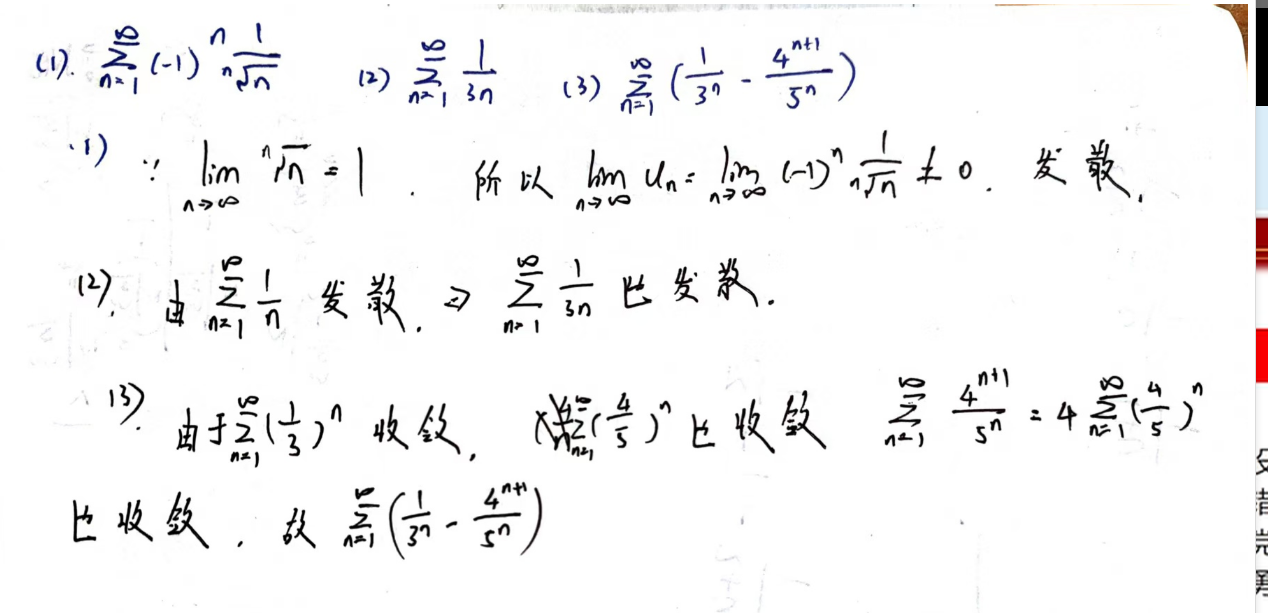 (1). ∑_{n=1}^{∞} (-1)^n \frac{1}{\sqrt[n]{n}} (2) ∑_{n=1}^{∞} \frac{1}{3n} (3) ∑_{n=1}^{∞} (\frac{1}{3^n} - \frac{4^{n+1}}{5^n})
(1) ∵ \lim_{n→∞} \sqrt[n]{n} = 1. 所以 \lim_{n→∞} u_n = \lim_{n→∞} (-1)^n \frac{1}{\sqrt[n]{n}} ≠ 0. 发散.
(2). 由 ∑_{n=1}^{∞} \frac{1}{n} 发散. ⇒ ∑_{n=1}^{∞} \frac{1}{3n} 也发散.
(3). 由于 ∑_{n=1}^{∞} (\frac{1}{3})^n 收敛. ∑_{n=1}^{∞} (\frac{4}{5})^n 也收敛 ∑_{n=1}^{∞} \frac{4^{n+1}}{5^n} = 4 ∑_{n=1}^{∞} (\frac{4}{5})^n
也收敛. 故 ∑_{n=1}^{∞} (\frac{1}{3^n} - \frac{4^{n+1}}{5^n})